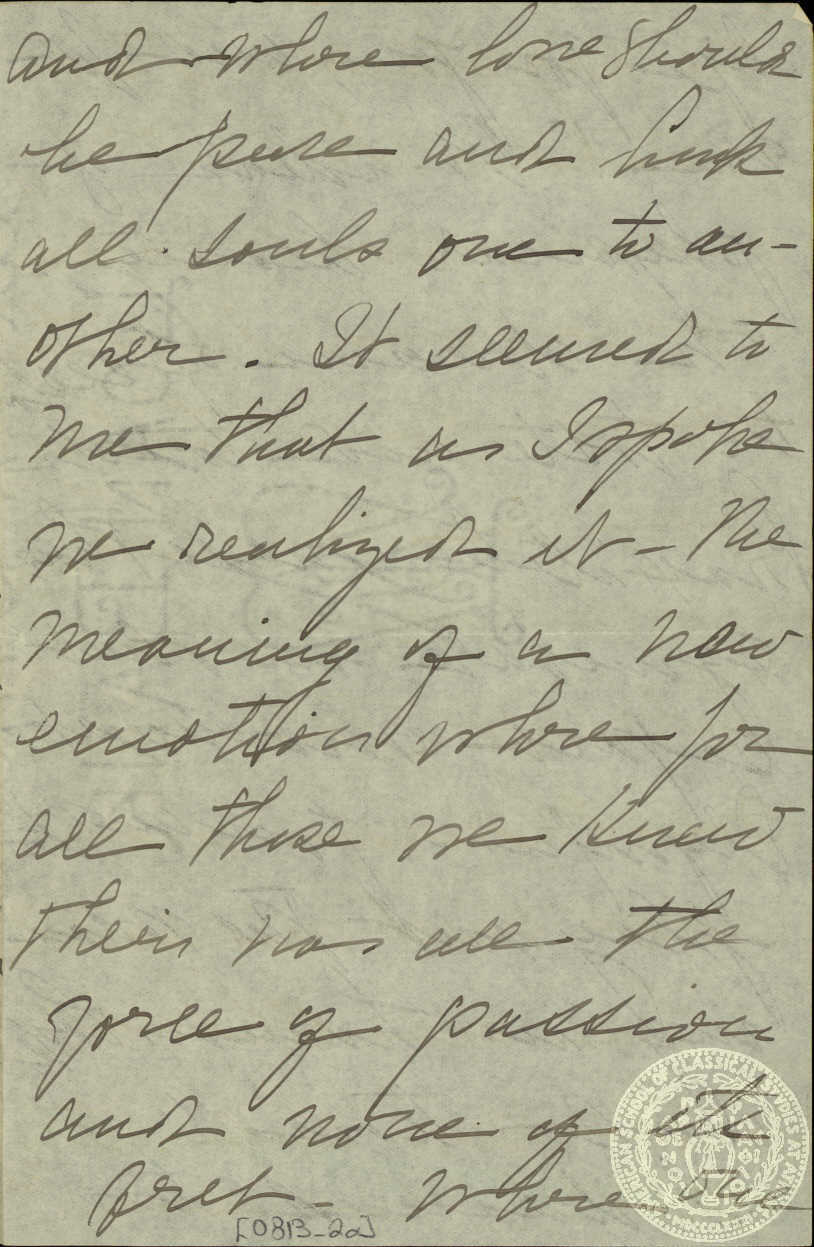 and where love should
be pure and link
all souls one to an-
other. It seemed to
me that as I spoke
we realized it - the
meaning of a new
emotion where for
all those we knew
their was all the
force of passion
and none of its
fret - where one
[0813_2a]
AMERICAN SCHOOL OF CLASSICAL STUDIES AT ATHENS
MDCCCLXXXI